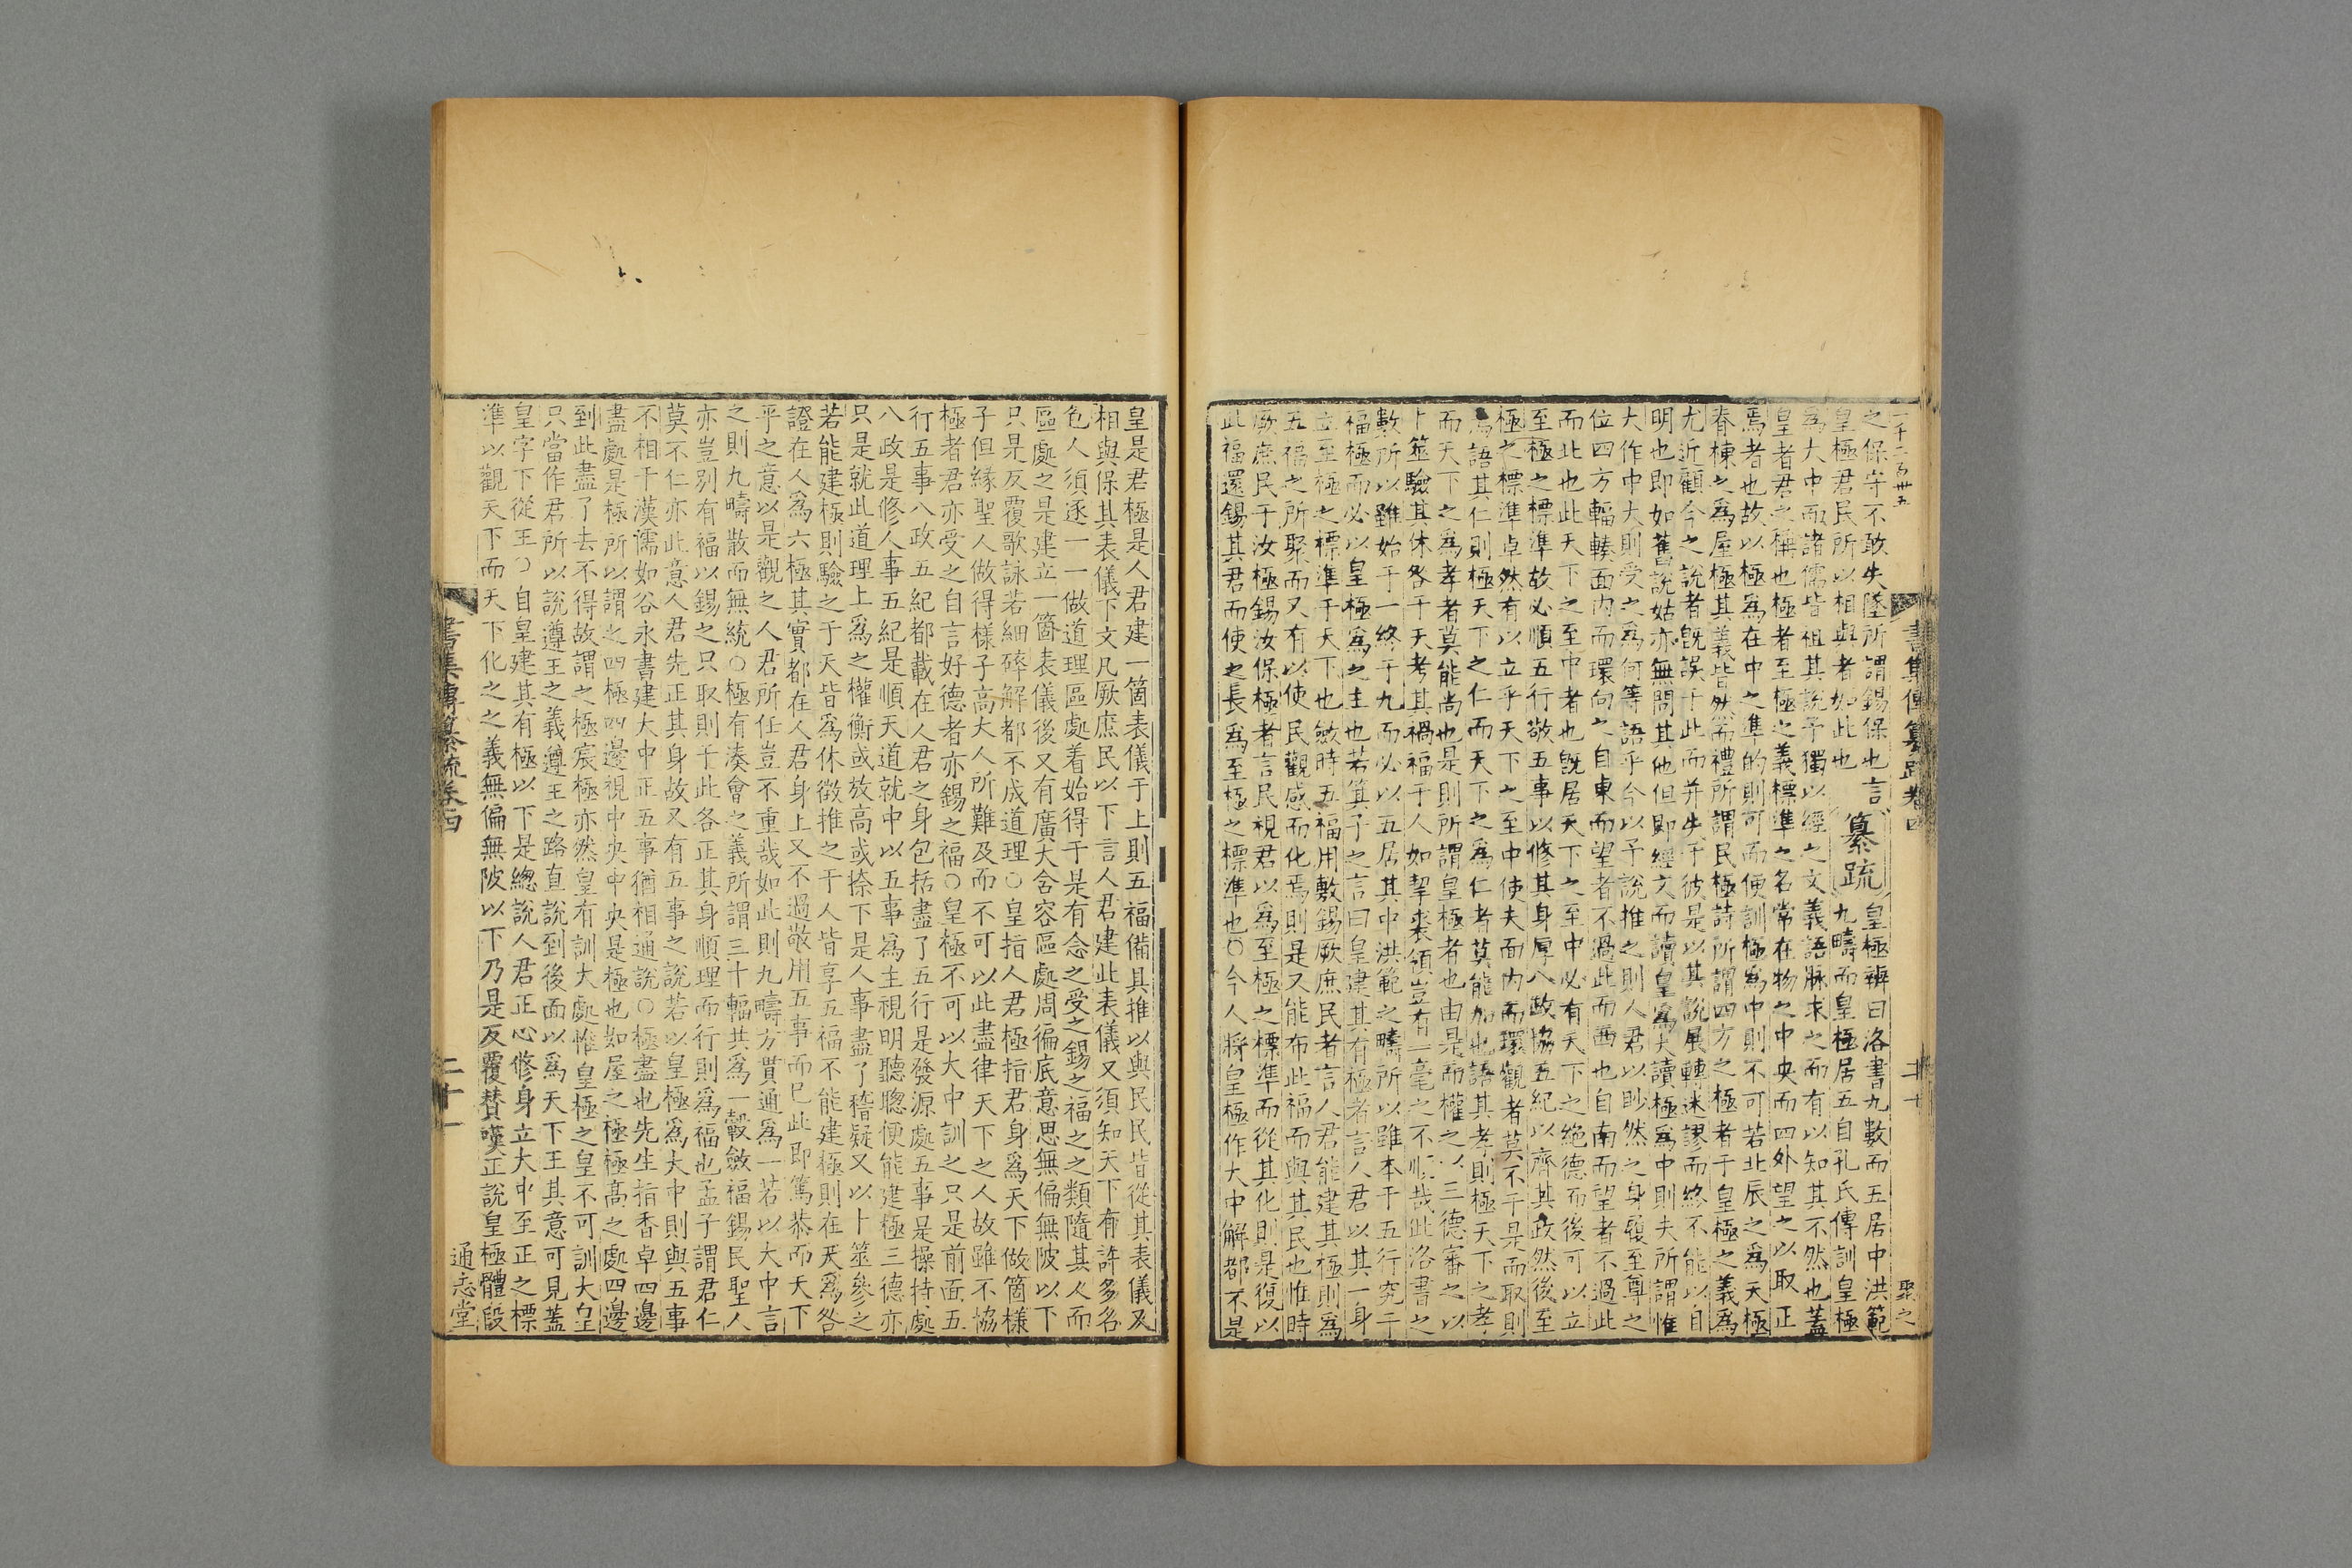 一千二百卅五
書集傳纂疏卷四
二十
聚之
之保守不敢失墜所謂錫保也言
皇極君民所以相與者如此也
纂疏
皇極辨曰洛書九數而五居中洪範
九疇而皇極居五自孔氏傳訓皇極
為大中而諸儒皆祖其說予獨以經之文義語脉求之而有以知其不然也蓋
皇者君之稱也極者至極之義標準之名常在物之中央而四外望之以取正
焉者也故以極為在中之準的則可而便訓極為中則不可若北辰之為天極
脊棟之為屋極其義皆然而禮所謂民極詩所謂四方之極者于皇極之義為
尤近顧今之說者既誤于此而并失于彼是以其說展轉迷謬而終不能以自
明也即如舊說姑亦無問其他但即經文而讀皇為大讀極為中則夫所謂惟
大作中大則受之為何等語乎今以予說推之則人君以眇然之身履至尊之
位四方輻輳面内而環向之自東而望者不過此而西也自南而望者不過此
而北也此天下之至中者也既居天下之至中必有天下之絶德而後可以立
至極之標準故必順五行敬五事以修其身厚八政協五紀以齊其政然後至
極之標準卓然有以立乎天下之至中使夫面内而環觀者莫不于是而取則
焉語其仁則極天下之仁而天下之為仁者莫能加也語其孝則極天下之孝
而天下之為孝者莫能尚也是則所謂皇極者也由是而權之以三德審之以
卜筮驗其休咎于天考其禍福于人如挈裘領豈有一毫之不順哉此洛書之
數所以雖始于一終于九而必以五居其中洪範之疇所以雖本于五行究于
福極而必以皇極為之主也若箕子之言曰皇建其有極者言人君以其一身
立至極之標準于天下也斂時五福用敷錫厥庶民者言人君能建其極則為
五福之所聚而又有以使民觀感而化焉則是又能布此福而與其民也惟時
厥庶民于汝極錫汝保極者言民視君以為至極之標準而從其化則是復以
此福還錫其君而使之長為至極之標準也○今人將皇極作大中解都不是
皇是君極是人君建一箇表儀于上則五福備具推以與民民皆從其表儀又
相與保其表儀下文凡厥庶民以下言人君建此表儀又須知天下有許多名
色人須逐一一做道理區處着始得于是有念之受之錫之福之之類隨其人而
區處之是建立一箇表儀後又有廣大含容區處周徧底意思無偏無陂以下
只是反覆歌詠若細碎解都不成道理○皇指人君極指君身為天下做箇樣
子但緣聖人做得樣子高大人所難及而不可以此盡律天下之人故雖不協
極者君亦受之自言好德者亦錫之福○皇極不可以大中訓之只是前面五
行五事八政五紀都載在人君之身包括盡了五行是發源處五事是操持處
八政是修人事五紀是順天道就中以五事為主視明聽聰便能建極三德亦
只是就此道理上為之權衡或放高或捺下是人事盡了稽疑又以卜筮參之
若能建極則驗之于天皆為休徵推之于人皆享五福不能建極則在天為咎
證在人為六極其實都在人君身上又不過敬用五事而已此即篤恭而天下
平之意以是觀之人君所任豈不重哉如此則九疇方貫通為一若以大中言
之則九疇散而無統○極有湊會之義所謂三十輻共為一轂斂福錫民聖人
亦豈別有福以錫之只取則于此各正其身順理而行則為福也孟子謂君仁
莫不仁亦此意人君先正其身故又有五事之說若以皇極為大中則與五事
不相干漢儒如谷永書建大中正五事猶相通說○極盡也先生指香卓四邊
盡處是極所以謂之四極四邊視中央中央是極也如屋之極極高之處四邊
到此盡了去不得故謂之極宸極亦然皇有訓大處惟皇極之皇不可訓大皇
只當作君所以說遵王之義遵王之路直說到後面以為天下王其意可見蓋
皇字下從王○自皇建其有極以下是總說人君正心修身立大中至正之標
準以觀天下而天下化之之義無偏無陂以下乃是反覆贊嘆正說皇極體段
書集傳纂疏卷四
二十一
通志堂